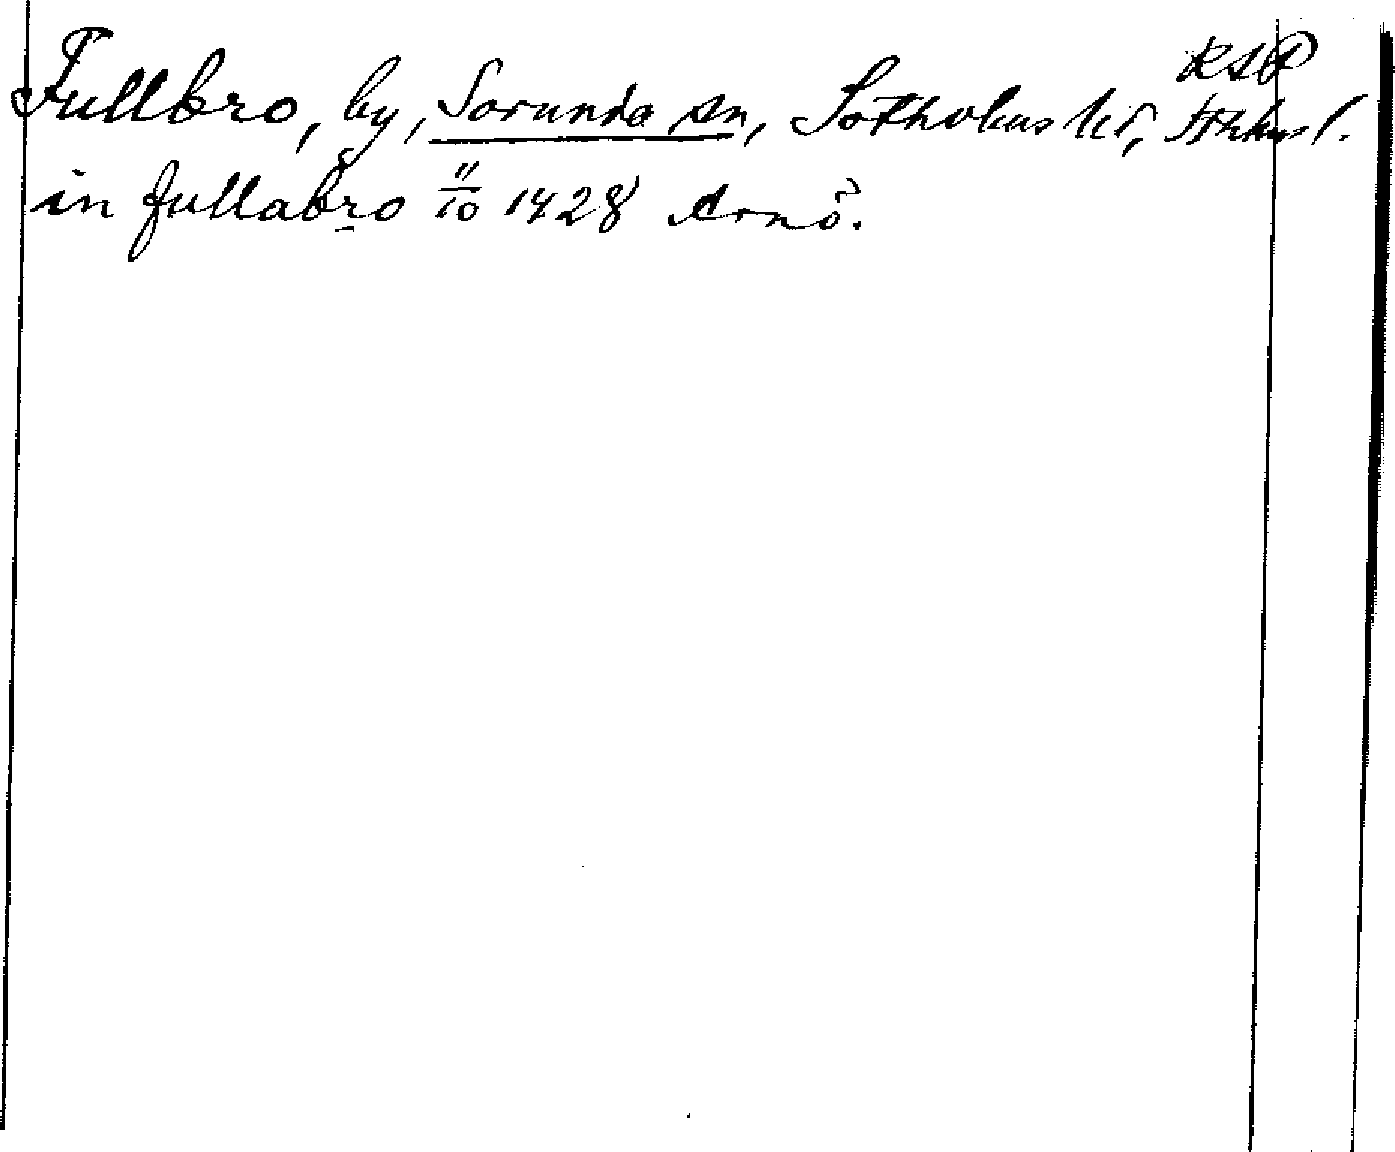 RAP
Fullbro, by, Sorunda sn, Sotholms hd, Sthlms l.
in fullabro 11/10 1428 Arnö.